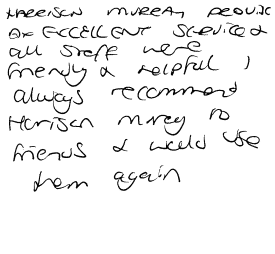 HARRISON MURRAY PROVIDE
AN EXCELLENT SERVICE &
all staff were
friendy & helpful I
always recommend
Harrison Murray to
friends & would use
them again